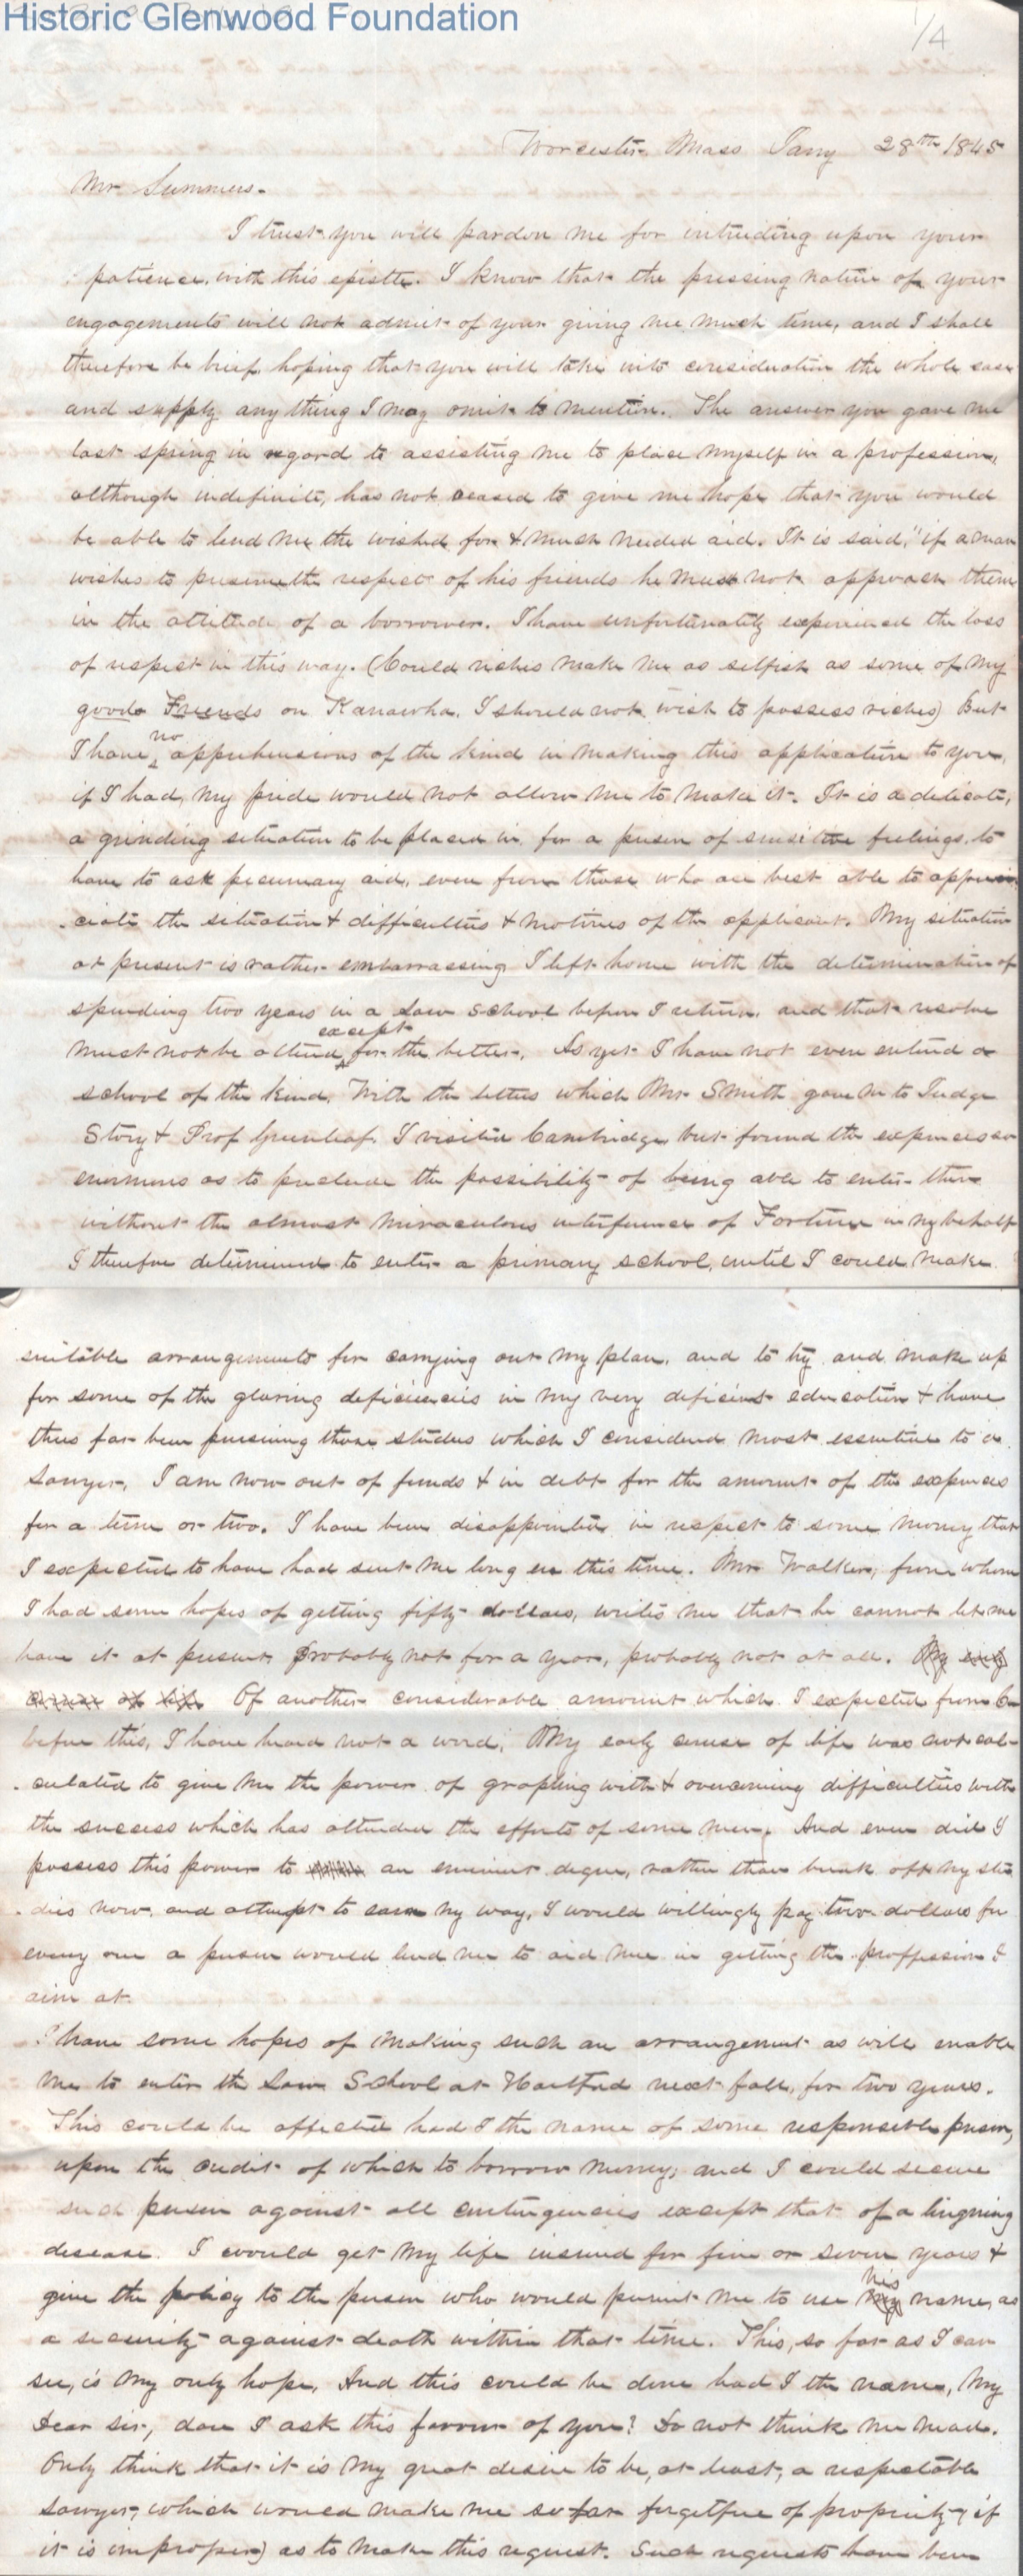 Historic Glenwood Foundation
1/4
Worcester Mass Jany 28th 1845
Mr Summers.
I trust you will pardon me for intruding upon your
patience with this epistle. I know that the pressing nature of your
engagements will not admit of your giving me much time, and I shall
therefore be brief, hoping that you will take into consideration the whole case
and supply any thing I may omit to mention. The answer you gave me
last spring in regard to assisting me to place myself in a profession,
although indefinite, has not ceased to give me hope that you would
be able to lend me the wished for & much needed aid. It is said, "if a man
wishes to preserve the respect of his friends he must not approach them
in the attitude of a borrower. I have unfortunately experienced the loss
of respect in this way. (Could riches make me as selfish as some of my
good Friends on Kanawha, I should not wish to possess riches) But
I have no apprehensions of the kind in making this application to you,
if I had, my pride would not allow me to make it. It is a delicate,
a grinding situation to be placed in, for a person of sensitive feelings, to
have to ask pecuniary aid, even from those who are best able to appre
-ciate the situation & difficulties & motives of the applicant. My situation
at present is rather embarrassing I left home with the determination of
spending two years in a Law School before I return, and that resolve
must not be altered except for the better. As yet I have not even entered a
school of the kind. With the letters which Mr Smith gave me to Judge
Story & Prof Greenleaf I visited Cambridge, but found the expenses so
enormous as to preclude the possibility of being able to enter there
without the almost miraculous interference of Fortune in my behalf
I therefore determined to enter a primary school, until I could make
suitable arrangements for carrying out my plan, and to try and make up
for some of the glaring deficiencies in my very deficient education & have
thus far been pursuing those studies which I considered most essential to a
Lawyer. I am now out of funds & in debt for the amount of the expenses
for a term or two. I have been disappointed in respect to some money that
I expected to have had sent me long ere this time. Mr Walker, from whom
I had some hopes of getting fifty dollars, writes me that he cannot let me
have it at present, probably not for a year, probably not at all. My early
course of life Of another considerable amount which I expected from
before this, I have heard not a word. My early course of life was not cal-
-culated to give me the power of grappling with & overcoming difficulties with
the success which has attended the efforts of some men. And even did I
possess this power to an eminent degree, rather than break off my stu
-dies now, and attempt to earn my way, I would willingly pay two dollars for
every one a person would lend me to aid me in getting the proffession I
aim at.
I have some hopes of making such an arrangement as will enable
me to enter the Law School at Hartford next fall, for two years.
This could be affected had I the name of some responsible person,
upon the credit of which to borrow money, and I could secure
such person against all contingencies except that of a lingring
disease. I would get my life insured for five or seven years &
give the policy to the person who would permit me to use my his name, as
a security against death within that time. This, so far as I can
see, is my only hope. And this could be done had I the name, My
Dear sir, dare I ask this favour of you? Do not think me mad.
Only think that it is my great desire to be, at least, a respectable
Lawyer, which would make me so far forgetful of propriety (if
it is improper) as to make this request. Such requests have been